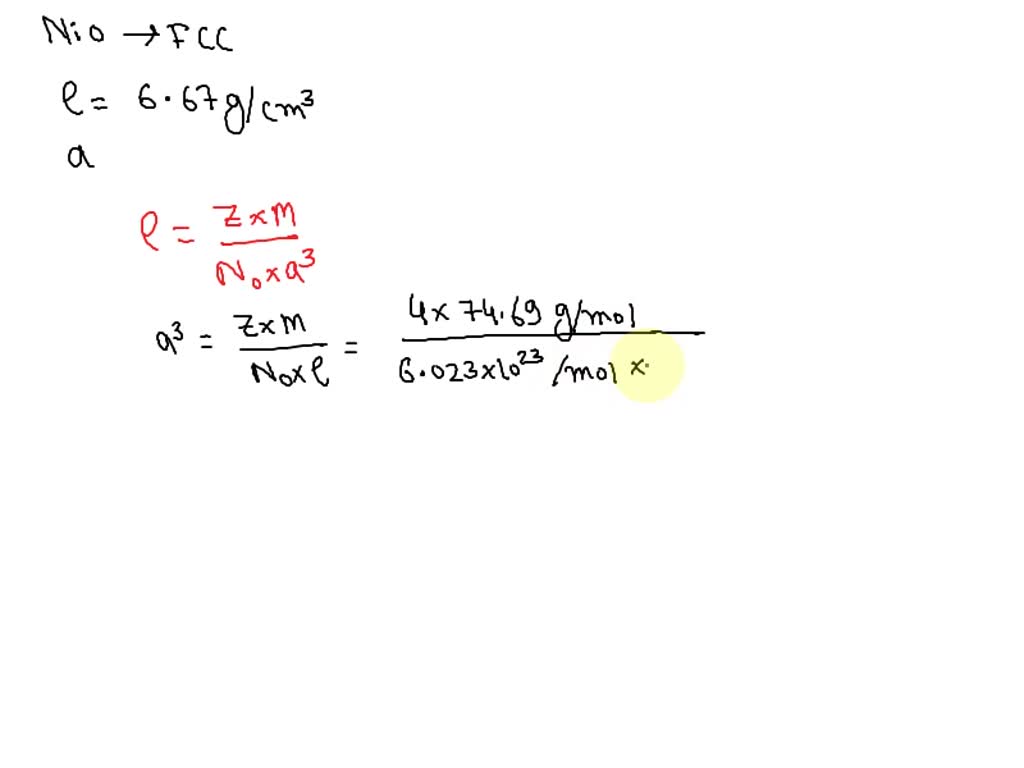 Nio → FCC
ρ = 6.67 g/cm³
a
ρ = Z × M / N₀ × a³
a³ = Z × M / N₀ × ρ = 4 × 74.69 g/mol / 6.023 × 10²³ /mol ×